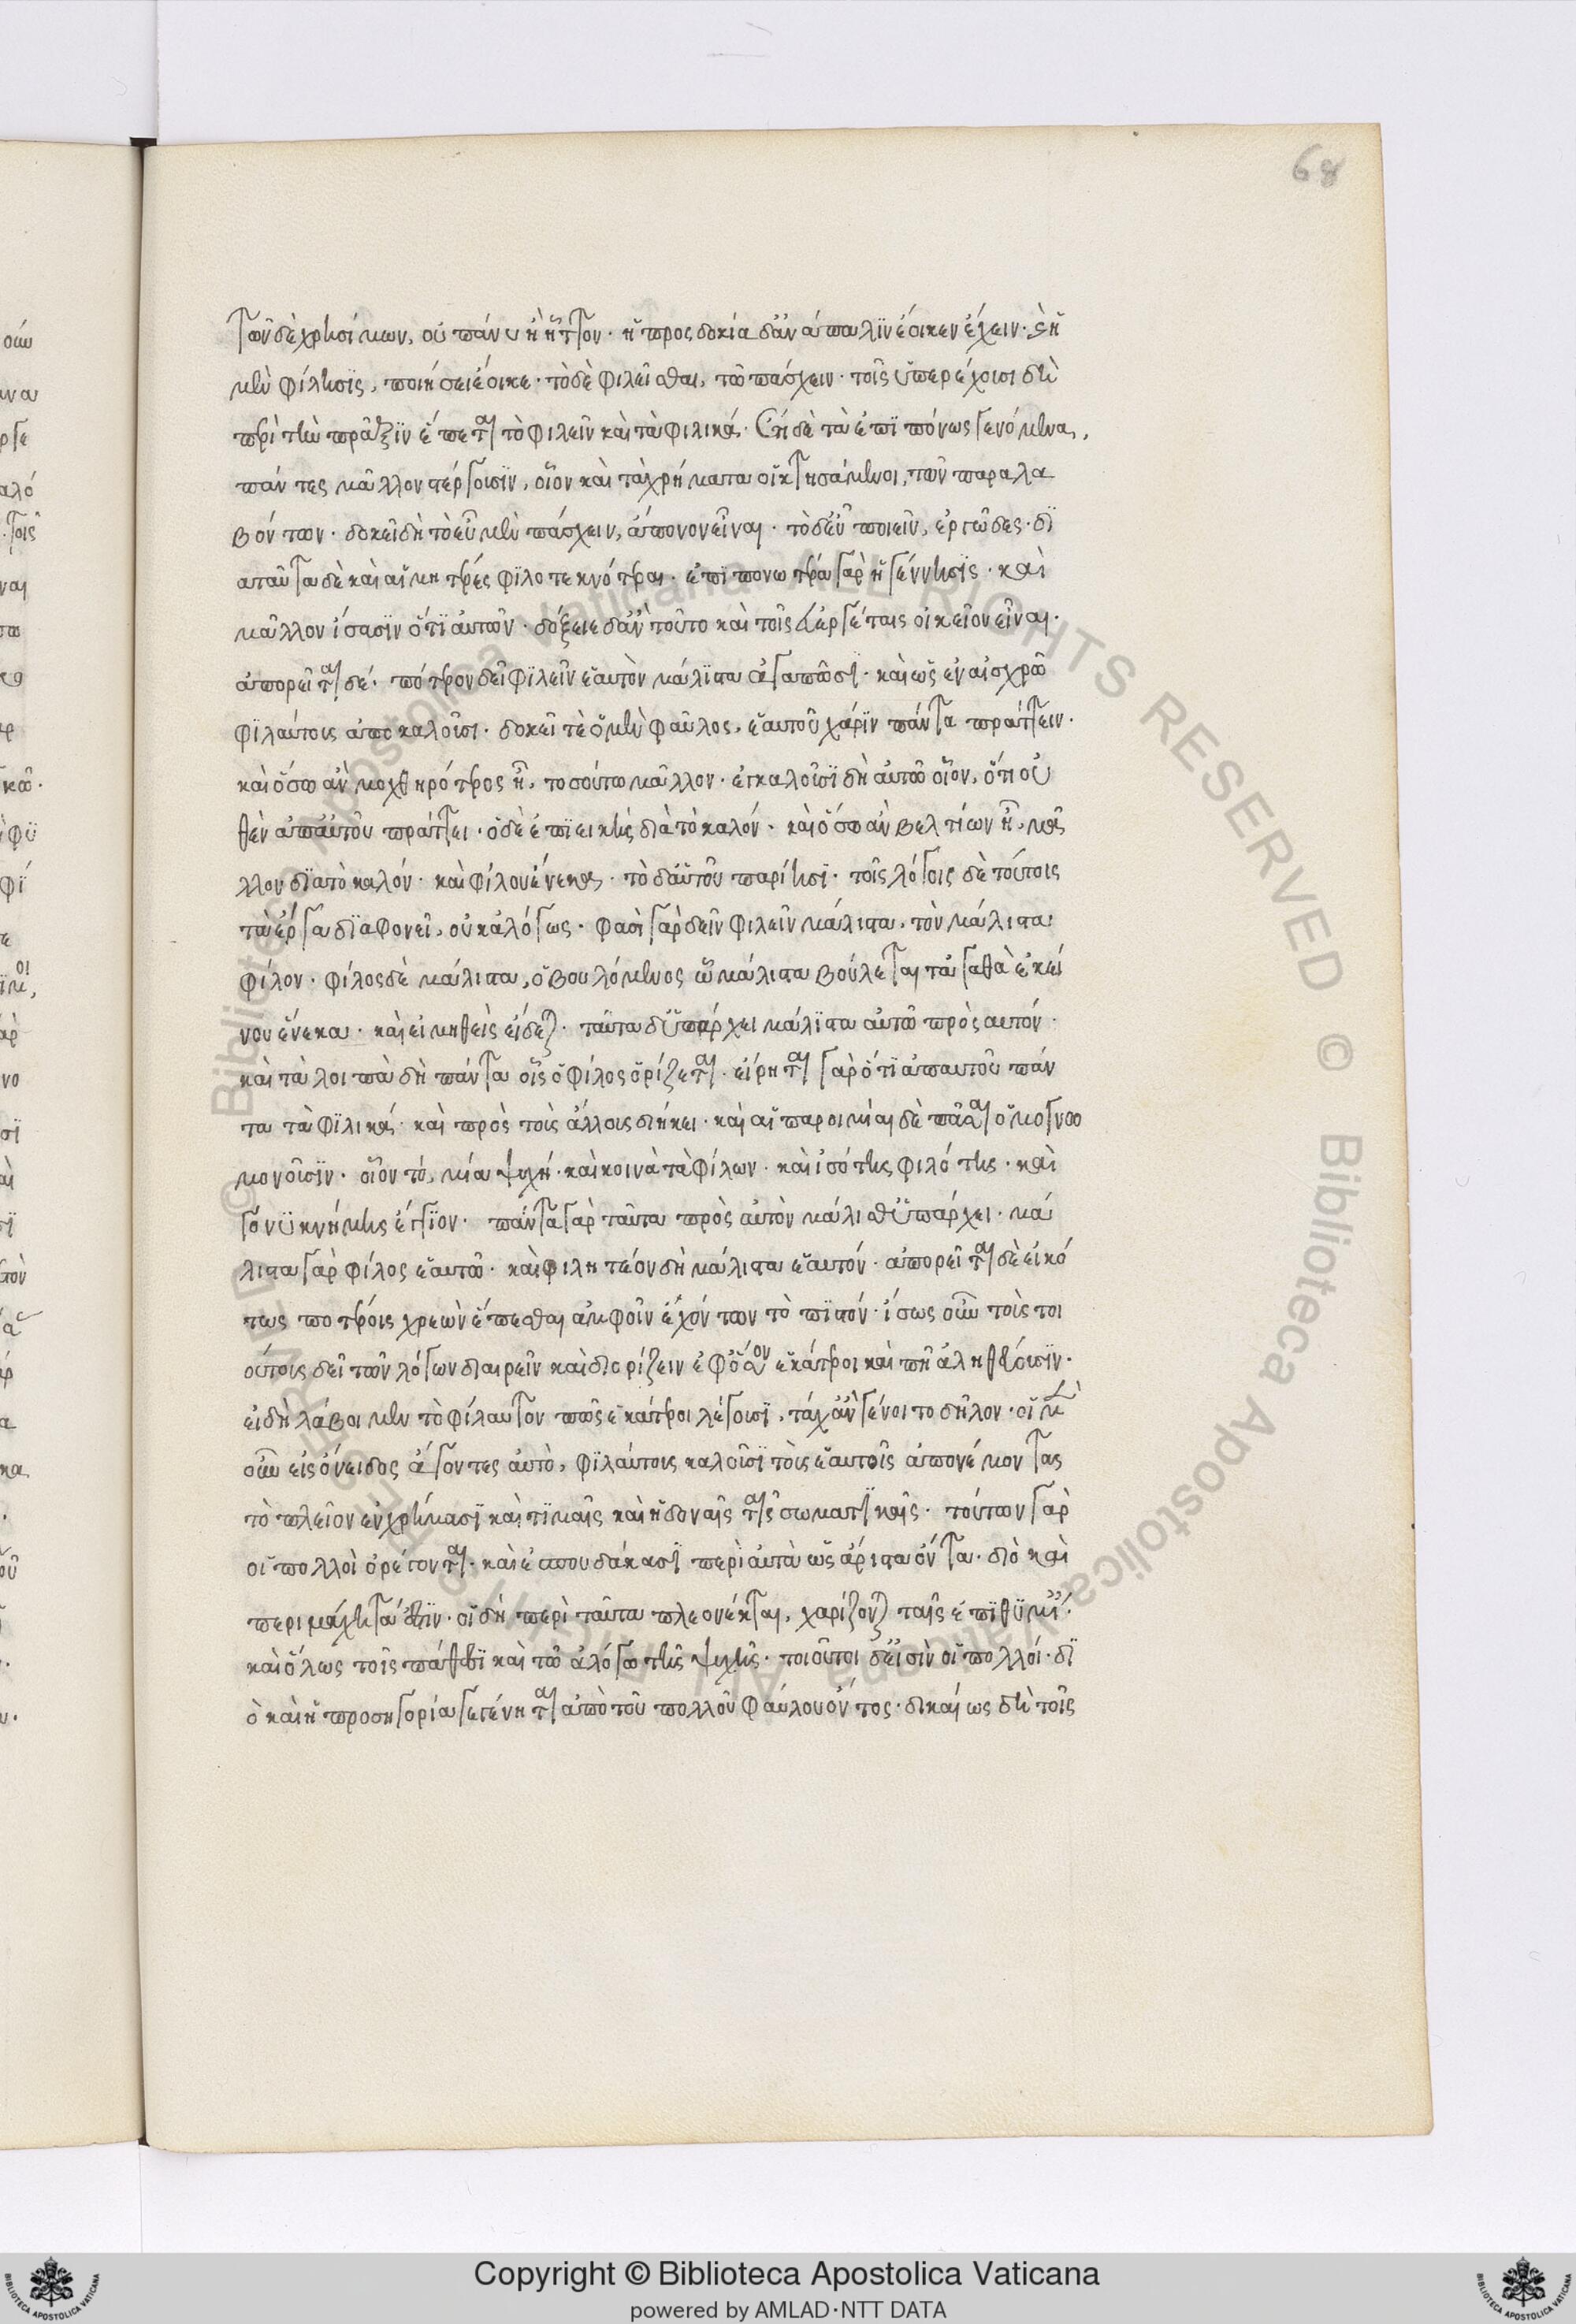 68
τῶν δὲ χρησίμων, οὐ πάνυ ἢ ἧττον· ἡ προσδοκία δ᾽ ἀνάπαλϊν ἔοικεν ἔχειν· καὶ ἡ
μὲν φίλησϊς, ποιήσει ἔοικε· τὸ δὲ φιλεῖσθαι, τῶ πάσχειν· τοῖς ὑπερέχουσι δὴ
περὶ τὴν πρᾶξϊν ἕπεται τὸ φιλεῖν καὶ τὰ φιλικά· Ἔτι δὲ τὰ ἐπϊπόνως γενόμενα,
πάντες μᾶλλον στέργουσϊν, οἷον καὶ τὰ χρήματα οἱ κτησάμενοι, τῶν παραλα
βόντων· δοκεῖ δὴ τὸ εὖ μὲν πάσχειν, ἄπονον εἶναι· τὸ δ᾽ εὖ ποιεῖν, ἐργῶδες· δϊ
αταῦτα δὲ καὶ αἱ μητρές φϊλοτεκνότεραι· ἐπϊπονωτέρα γὰρ ἡ γέννησϊς· καὶ
μᾶλλον ἴσασϊν ὅτϊ αὐτῶν· δόξειε δ᾽ ἂν τοῦτο καὶ τοῖς εὐεργέταις οἰκεῖον εἶναι·
ἀπορεῖται δέ· πότερον δεῖ φϊλεῖν ἑαυτὸν μάλϊστα ἀγαπῶσϊ· καὶ ὡς ἐν αἰσχρῶ
φϊλαύτους ἀποκαλοῦσι· δοκεῖ τὲ ὁ μὲν φαῦλος, ἑαυτοῦ χάρϊν πάντα πράττειν·
καὶ ὅσω ἂν μοχθηρότερος ἦ, τοσούτω μᾶλλον· ἐγκαλοῦσϊ δὴ αὐτῶ οἷον, ὅτι οὐ
θὲν ἀπ᾽ αὐτοῦ πράττει· ὁ δὲ ἐπϊεικὴς διὰ τὸ καλόν· καὶ ὅσω ἂν βελτίων ἦ, μᾶ
λλον δϊα τὸ καλόν· καὶ φίλου ἕνεκα· τὸ δ᾽ αὑτοῦ παρίησϊ· τοῖς λόγοις δὲ τούτοις
τὰ ἔργα δϊαφονεῖ, οὐκ ἀλόγως· φασὶ γὰρ δεῖν φιλεῖν μάλιστα, τὸν μάλιστα
φίλον· φίλος δὲ μάλιστα, ὁ βουλόμενος ὧ μάλιστα βούλεται τ᾽ ἀγαθὰ ἐκεί
νου ἕνεκα· καὶ εἰ μηθεὶς εἴσεται· ταῦτα δ᾽ ὑπάρχει μάλϊστα αὐτῶ πρὸς αυτόν·
καὶ τὰ λοιπὰ δὴ πάντα οἷς ὁ φίλος ὁρίζεται· εἴρηται γὰρ ὅτϊ ἀπαυτοῦ πάν
τα τὰ φϊλικά· καὶ πρὸς τοὺς ἄλλους διήκει· καὶ αἱ παροιμίαι δὲ πᾶσαι ὁμογνω
μονοῦσϊν· οἷον τὸ, μία ψυχή· καὶ κοινὰ τὰ φίλων· καὶ ἰσότης φιλότης· καὶ
γόνϋ κνήμης ἔγγϊον· πάντα γὰρ ταῦτα πρὸς αὐτὸν μάλισθ᾽ ὑπάρχει· μά
λιστα γὰρ φίλος ἑαυτῶ· καὶ φιλητέον δὴ μάλιστα ἑαυτόν· ἀπορεῖται δὲ εἰκό
τως ποτέροις χρεὼν ἕπεσθαι ἀμφοῖν ἐχόντων τὸ πϊστόν· ἴσως οὖν τοὺς τοι
ούτους δεῖ τῶν λόγων διαιρεῖν καὶ διορίζειν ἐφ᾽ ὅσον ἑκάτεροι καὶ πῆ ἀληθεύουσϊν·
εἰ δὴ λάβοιμεν τὸ φίλαυτον πῶς ἑκάτεροι λέγουσϊ, τάχ᾽ ἂν γένοιτο δῆλον· οἱ μὲν
οὖν εἰς ὄνειδος ἄγοντες αὐτὸ, φϊλαύτους καλοῦσϊ τοὺς ἑαυτοῖς ἀπονέμοντας
τὸ πλεῖον ἐν χρήμασϊ καὶ τϊμαῖς καὶ ἡδοναῖς ταῖς σωματϊκαῖς· τούτων γὰρ
οἱ πολλοὶ ὀρέγονται· καὶ ἐσπουδάκασϊ περὶ αὐτὰ ὡς ἄριστα ὄντα· διὸ καὶ
περιμάχητά ἐστϊν· οἱ δὴ περὶ ταῦτα πλεονέκται, χαρίζονται ταῖς ἐπϊθϋμίαις·
καὶ ὅλως τοῖς πάθεσϊ καὶ τῶ ἀλόγω τῆς ψυχῆς· τοιοῦτοι δ᾽ εἰσὶν οἱ πολλοί· δϊ
ὸ καὶ ἡ προσηγορία γεγένηται ἀπὸ τοῦ πολλοῦ φαύλου ὄντος· δικαίως δὴ τοῖς
Copyright © Biblioteca Apostolica Vaticana
powered by AMLAD·NTT DATA